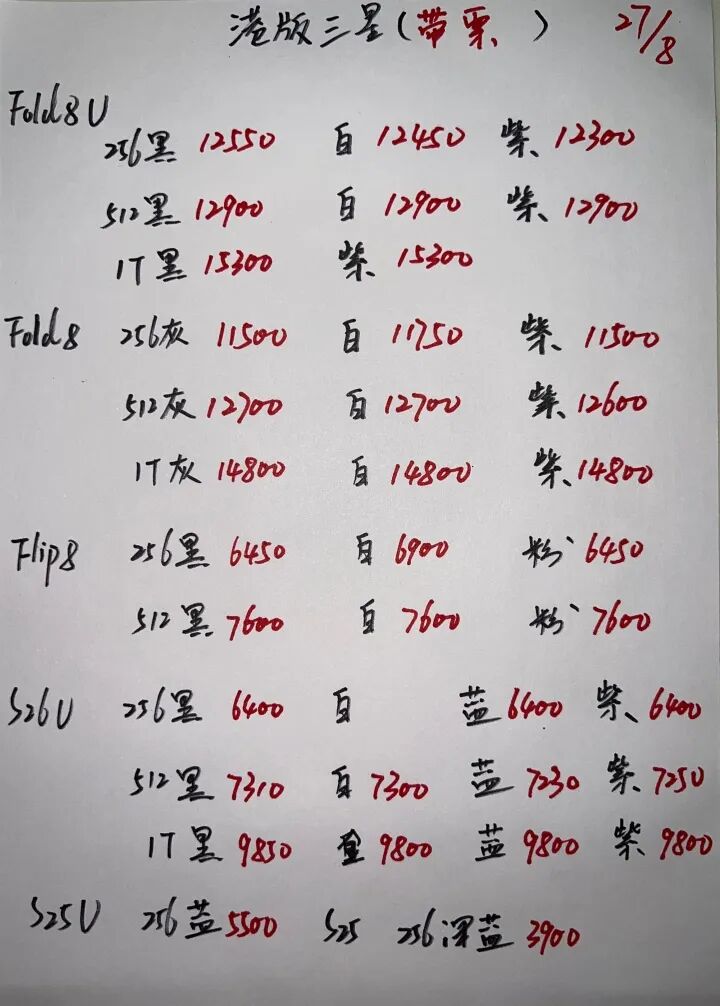 港版三星(带票 ) 27/8
Fold8U
256黑 12550 白 12450 紫、12300
512黑 12900 白 12900 紫、12900
1T黑 15300 紫、15300
Fold8 256灰 11500 白 11750 紫、11500
512灰 12700 白 12700 紫、12600
1T灰 14800 白 14800 紫、14800
Flip8 256黑 6450 白 6900 粉 6450
512黑 7600 白 7600 粉 7600
S26U 256黑 6400 白 蓝 6400 紫、6400
512黑 7310 白 7300 蓝 7230 紫、7250
1T黑 9850 9800 蓝 9800 紫、9800
S25U 256蓝 5500 S25 256深蓝 3900